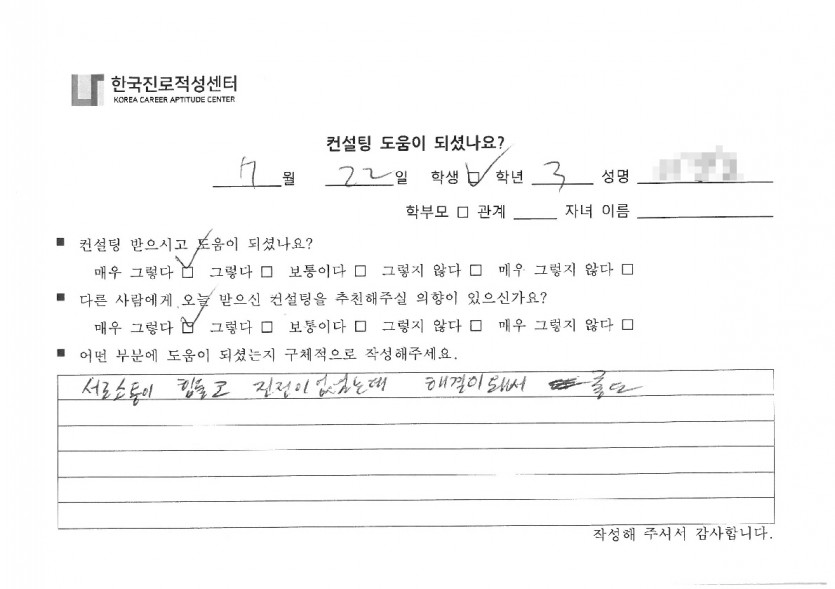 한국진로적성센터
KOREA CAREER APTITUDE CENTER
컨설팅 도움이 되셨나요?
7 월 22 일 학생 □ 학년 3 성명
학부모 □ 관계 자녀 이름
■ 컨설팅 받으시고 도움이 되셨나요?
매우 그렇다 □ 그렇다 □ 보통이다 □ 그렇지 않다 □ 매우 그렇지 않다 □
■ 다른 사람에게 오늘 받으신 컨설팅을 추천해주실 의향이 있으신가요?
매우 그렇다 □ 그렇다 □ 보통이다 □ 그렇지 않다 □ 매우 그렇지 않다 □
■ 어떤 부분에 도움이 되셨는지 구체적으로 작성해주세요.
서로소통이 힘들고 진전이없었는데 해결이돼서 좋다
작성해 주셔서 감사합니다.